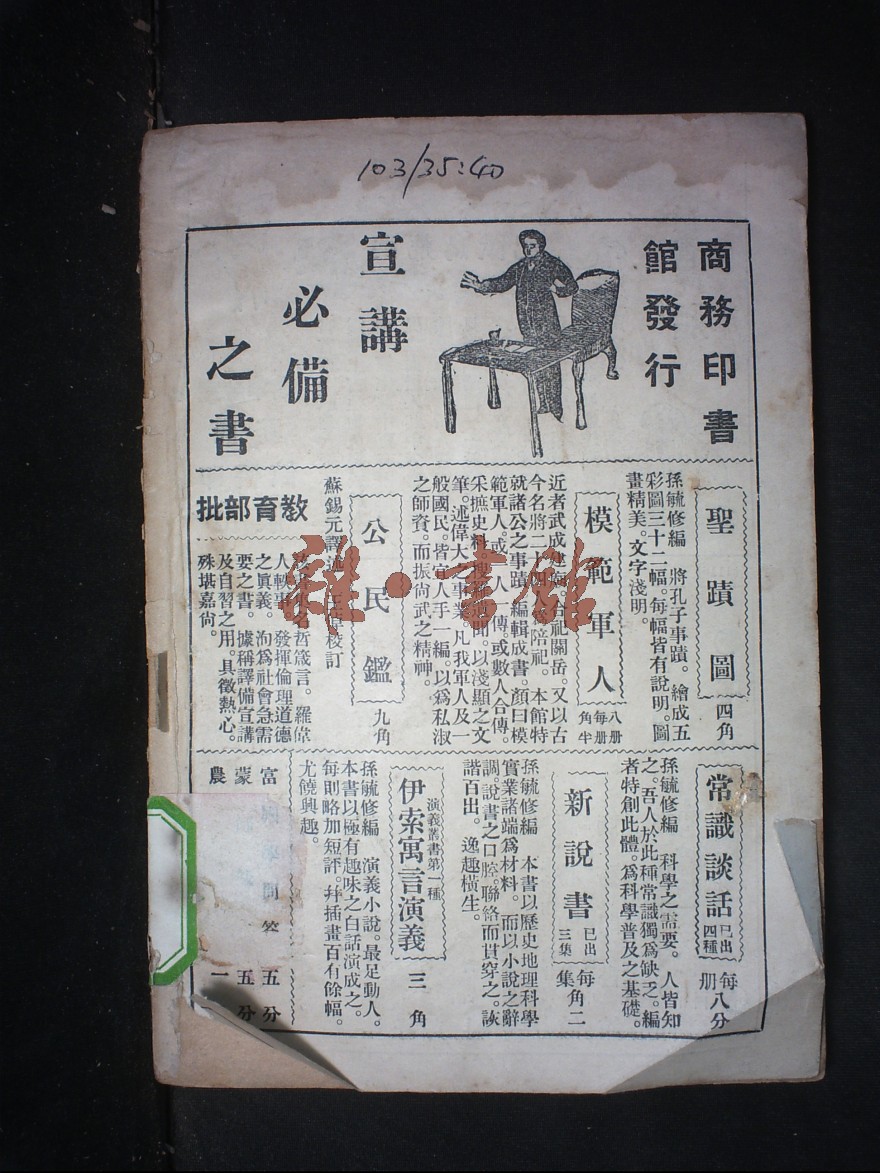 103/35:40
商務印書
館發行
宣講
必備
之書
聖蹟圖 四角
孫毓修編 將孔子事蹟。繪成五
彩圖三十二幅。每幅皆有說明。圖
畫精美。文字淺明。
模範軍人 八册 每册角半
近者武成建廟。合祀關岳。又以古
今名將二十四人陪祀。本館特
就諸公之事蹟。編輯成書。顏曰模
範軍人。或一人一傳。或數人合傳。
采摭史料。搜羅舊聞。以淺顯之文
筆。述偉大之事業。凡我軍人及一
般國民。皆宜人手一編。以爲私淑
之師資。而振尚武之精神。
公民鑑 九角
蘇錫元譯述 校訂
教育部批
哲箴言。羅偉
人軼事。發揮倫理道德
之眞義。洵爲社會急需
要之書。據稱譯備宣講
及自習之用。具徵熱心。
殊堪嘉尙。
常識談話 已出四種 每册八分
孫毓修編 科學之需要。人皆知
之。吾人於此種常識獨爲缺乏。編
者特創此體。爲科學普及之基礎。
新說書 已出三集 每集角二
孫毓修編 本書以歷史地理科學
實業諸端爲材料。而以小說之辭
調。說書之口腔。聯絡而貫穿之。詼
諧百出。逸趣橫生。
演義叢書第一種
伊索寓言演義 三角
孫毓修編 演義小說。最足動人。
本書以極有趣味之白話演成之。
每則略加短評。幷插畫百有餘幅。
尤饒興趣。
富 五分
蒙 五分
農 一
雜·書館